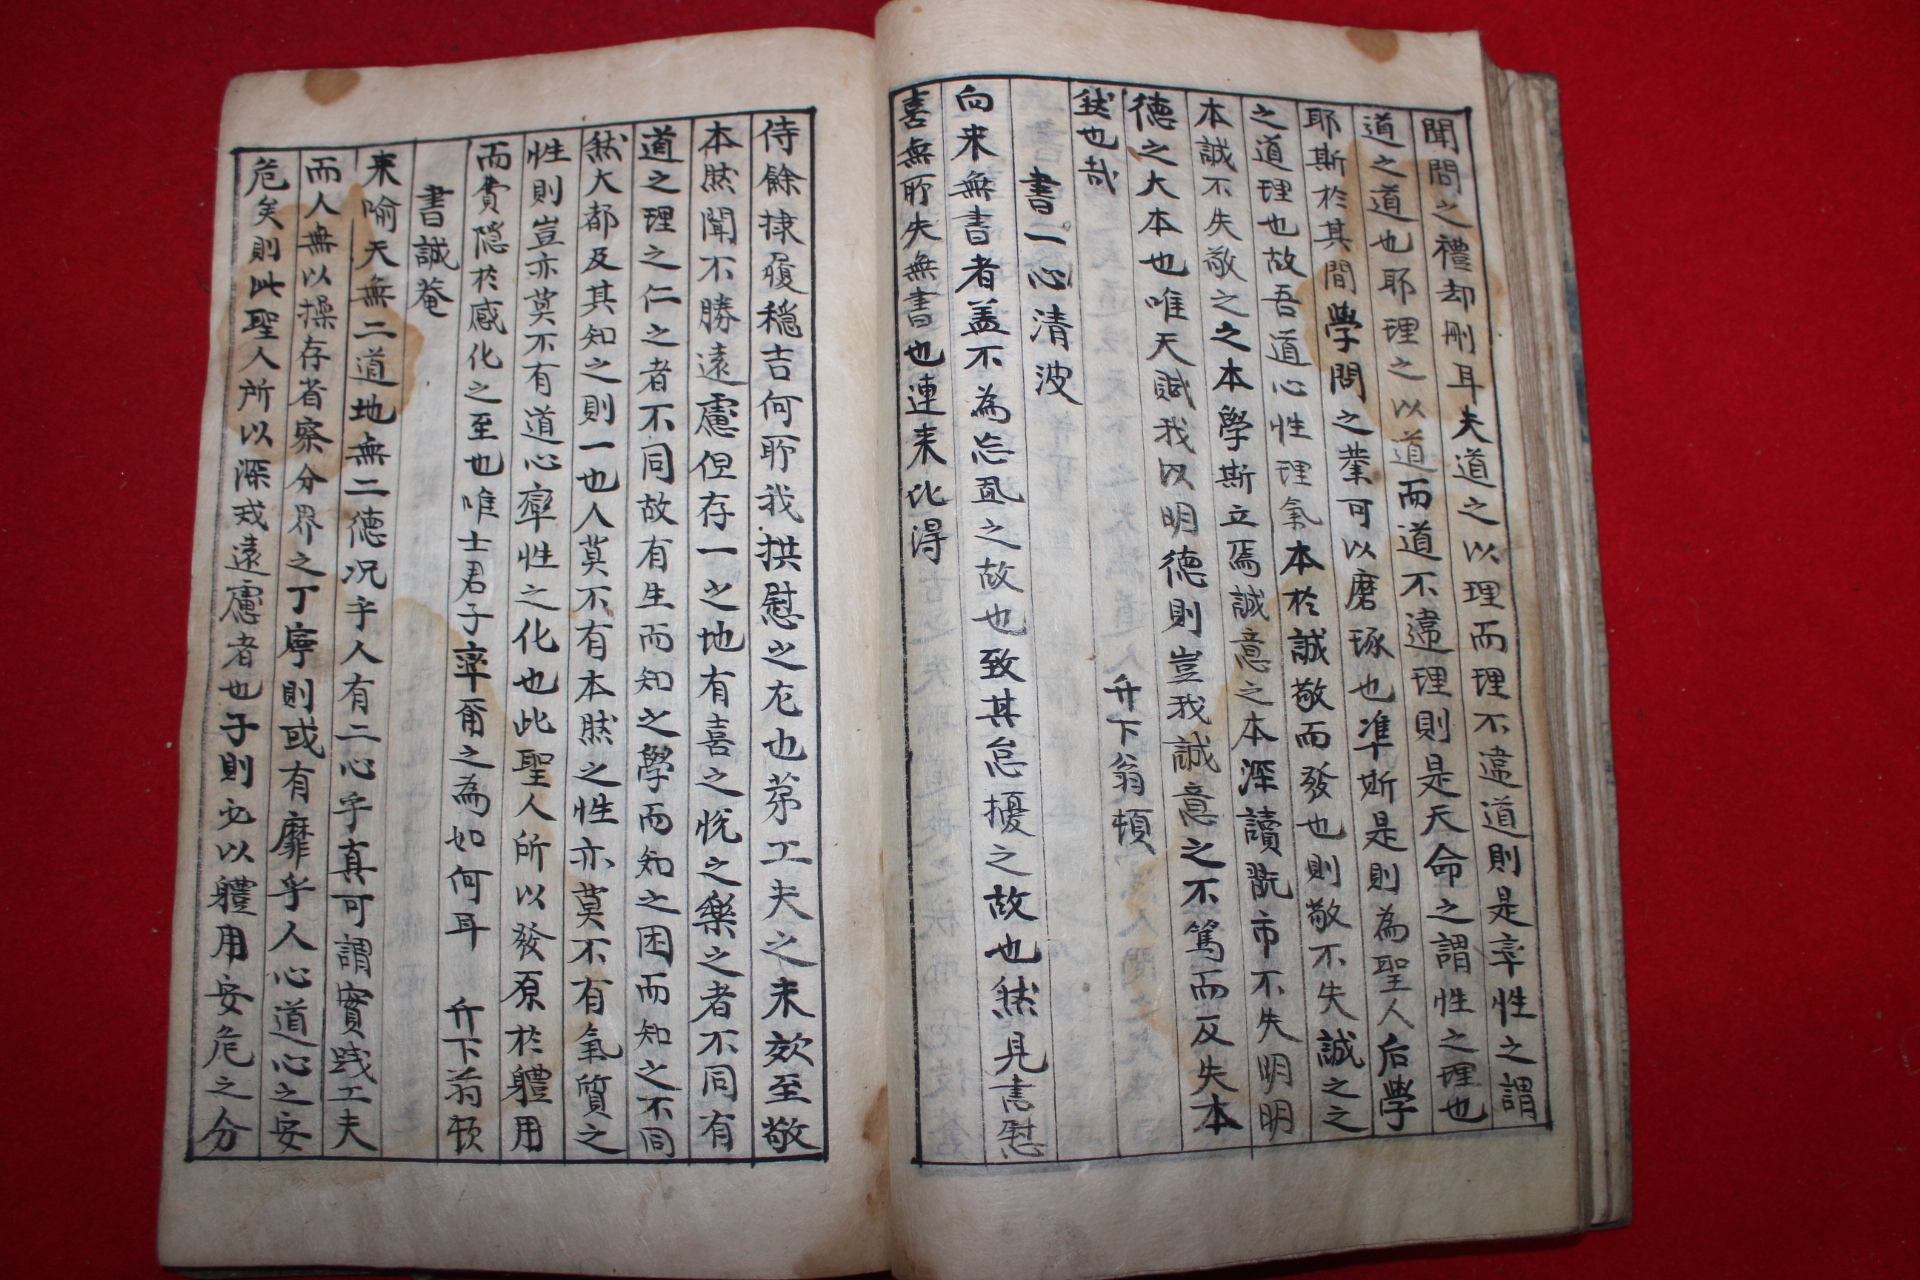 聞問之禮却刪耳夫道之以理而理不違道則是率性之謂
道之道也耶理之以道而道不違理則是天命之謂性之理也
耶斯於其間學問之業可以磨琢也準斯是則為聖人后學
之道理也故吾道心性理氣本於誠敬而發也則敬不失誠之之
本誠不失敬之之本學斯立焉誠意之本深讀既市不失明明
德之大本也唯天賦我以明德則豈我誠意之不篤而反失本
然也哉 升下翁頓
書一心清波
向来無書者盖不為忘㐫之故也致其怠擾之故也然見書慰
喜無耶失無書也連来比得
侍餘捸履穏吉何耶我拱慰之尤也苐工夫之未效至敬
本然聞不勝遠慮但存一之地有喜之悅之樂之者不同有
道之理之仁之者不同故有生而知之學而知之困而知之不同
然大都及其知之則一也人莫不有本然之性亦莫不有氣質之
性則豈亦莫不有道心率性之化也此聖人所以發原於軆用
而費隠於感化之至也唯士君子率爾之為如何耳 升下翁頓
書誠菴
来喻天無二道地無二德况乎人有二心乎真可謂實踐工夫
而人無以操存省察分界之丁寧則或有靡乎人心道心之安
危矣則此聖人所以深戒遠慮者也子則必以軆用安危之分